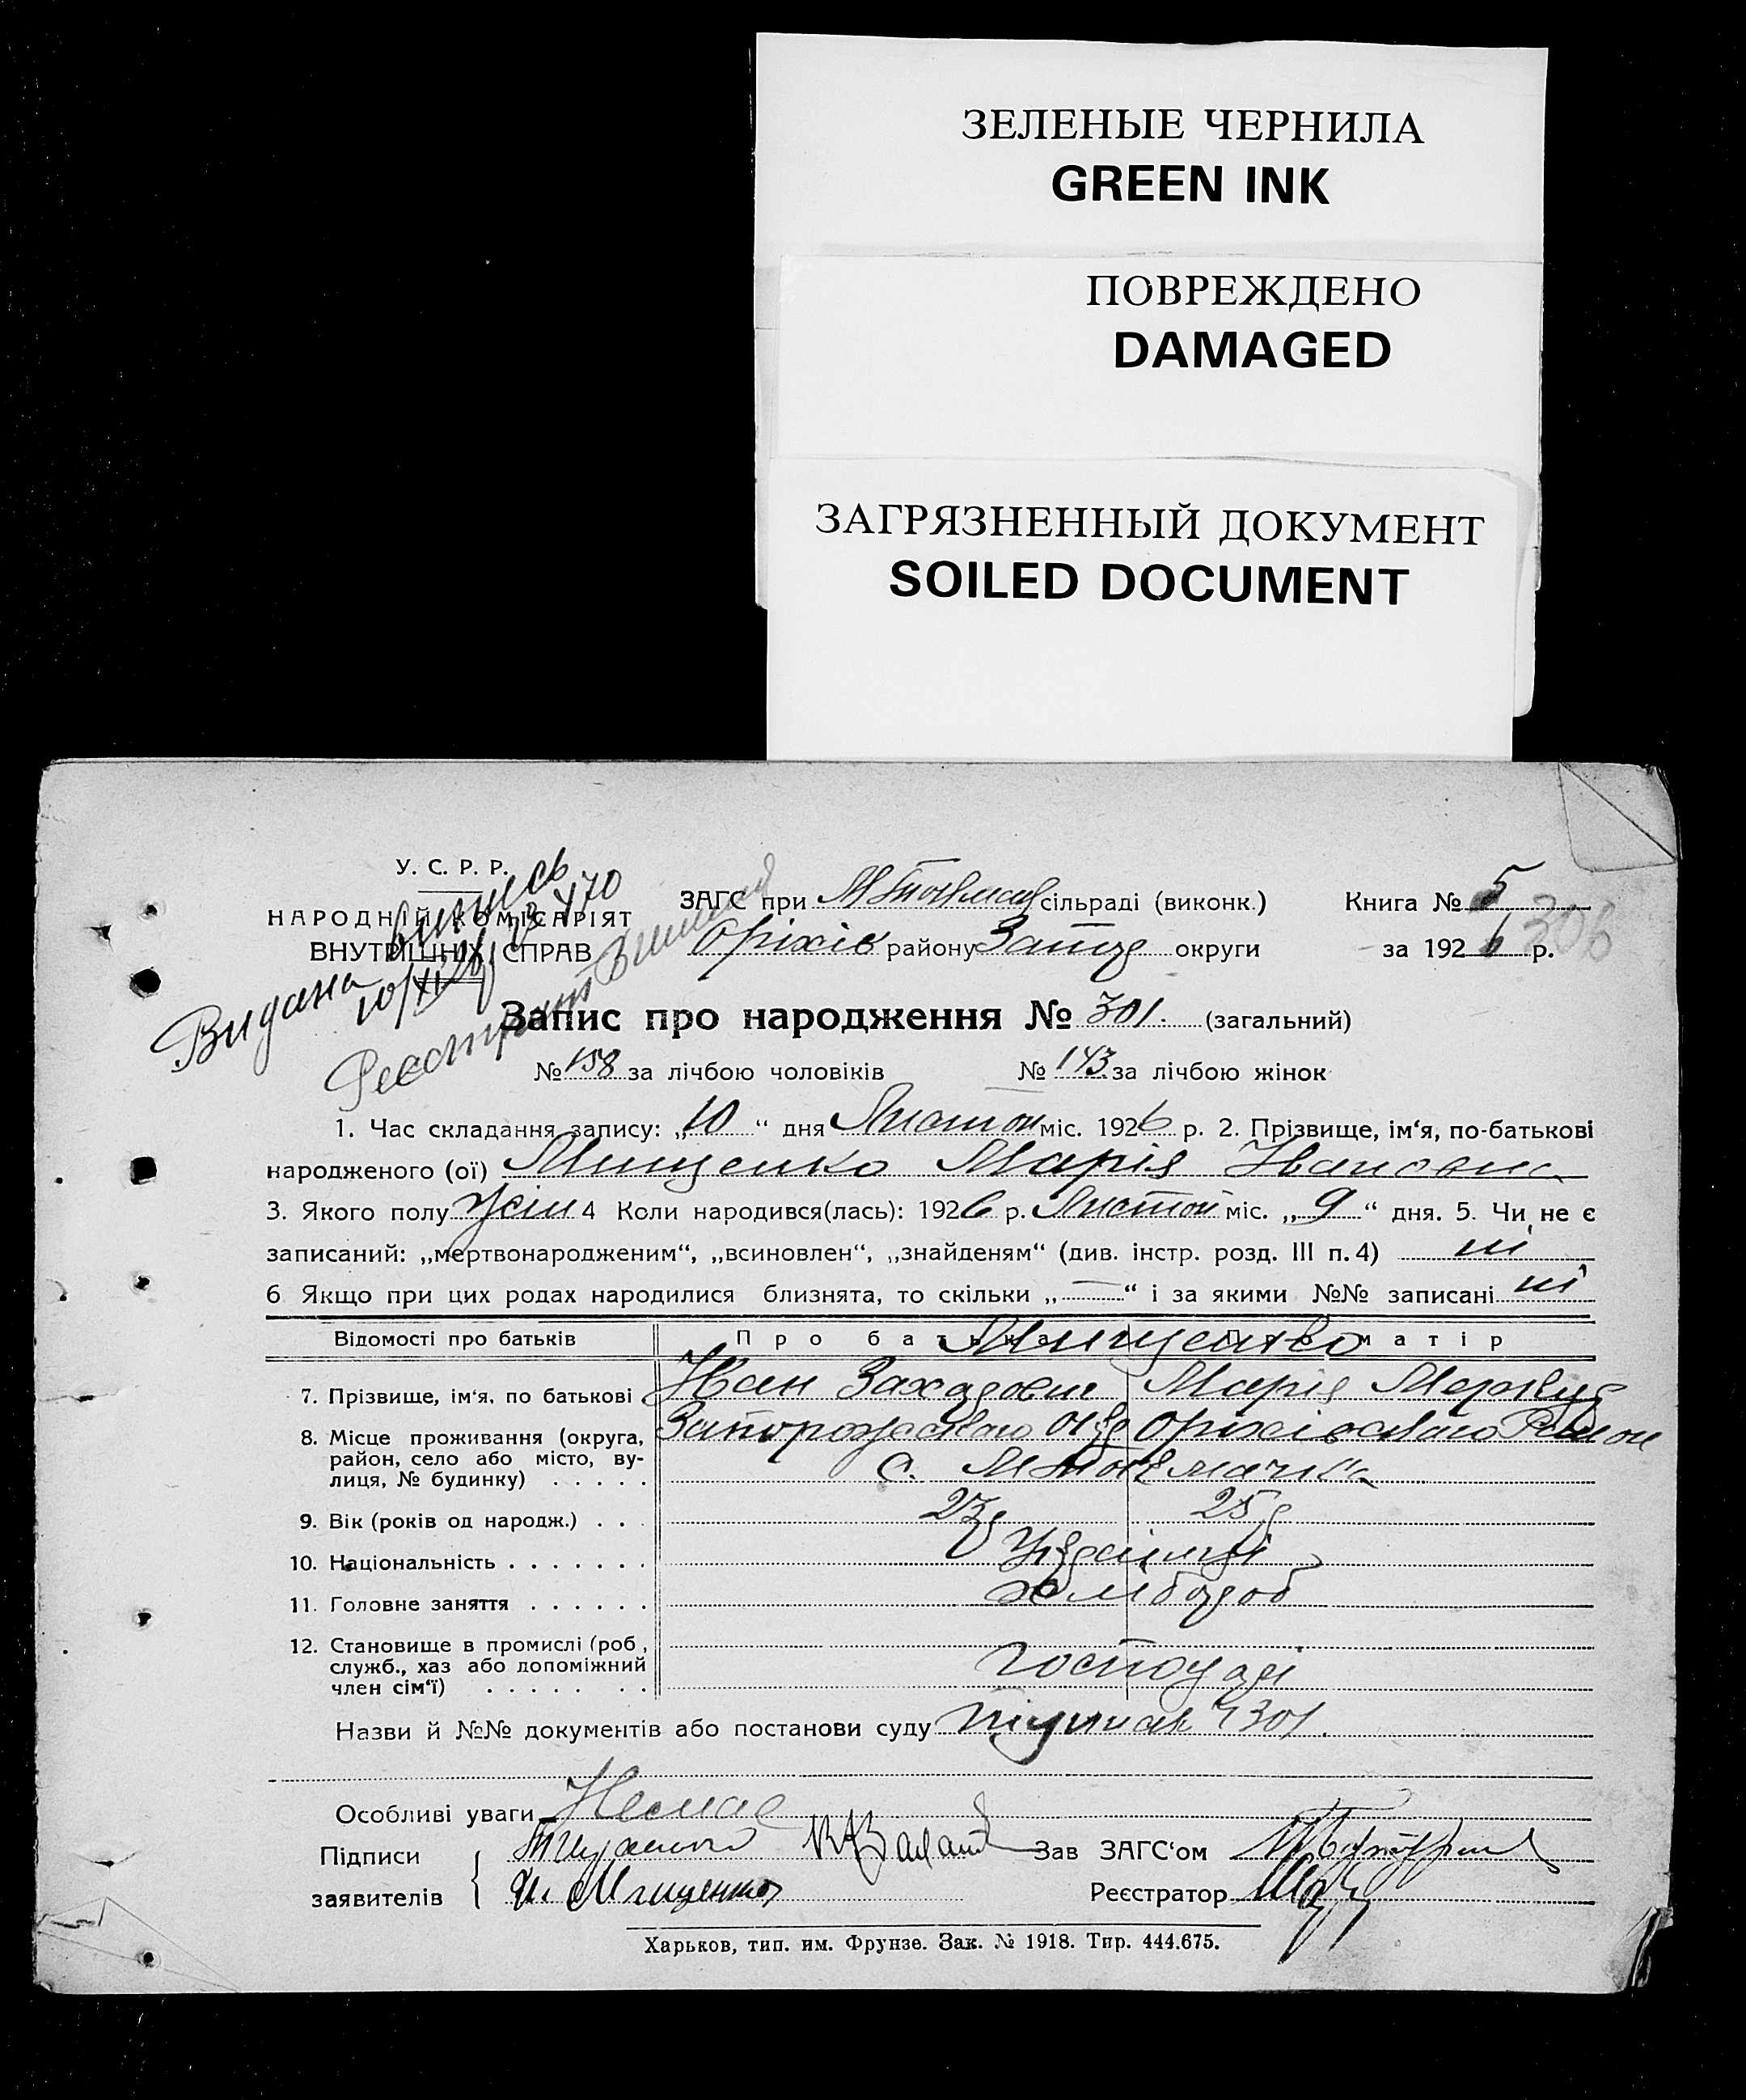 ЗЕЛЕНЫЕ ЧЕРНИЛА
GREEN INK
ПОВРЕЖДЕНО
DAMAGED
ЗАГРЯЗНЕННЫЙ ДОКУМЕНТ
SOILED DOCUMENT
У. С. Р. Р.
НАРОДНІЙ КОМІСАРІЯТ
ВНУТРІШНІХ СПРАВ
Видана випись
10/XI 26 470
ЗАГС при М Токмац сільраді (виконк.) Книга № 5
306
Оріхів району Запор округи за 1926 р.
Запис про народження № 301. (загальний)
№ 158 за лічбою чоловіків № 143 за лічбою жінок
1. Час складання запису: „10“ дня Листоп міс. 1926 р. 2. Прізвище, ім‘я, по-батькові
народженого (ої) Мищенко Марія Ивановна
3. Якого полу Жін 4 Коли народився(лась): 1926 р. Листоп міс. „9“ дня. 5. Чи не є
записаний: „мертвонародженим“, „всиновлен“, „знайденям“ (див. інстр. розд. III п. 4) ні
6 Якщо при цих родах народилися близнята, то скільки „—“ і за якими №№ записані ні
Відомості про батьків Про батька Про матір
Мищенко
7. Прізвище, ім‘я, по батькові Иван Захарович Марія
8. Місце проживання (округа, Запорожского Окр Оріхівского Район
район, село або місто, ву-
лиця, № будинку) . . . . . с. М Токмачка
9. Вік (років од народж.) . . . 23 25
10. Національність . . . . . . . Українці
11. Головне заняття . . . . . . хлібороб
12. Становище в промислі (роб.,
служб., хаз або допоміжний Господарі
член сім‘ї) . . . . . . .
Назви й №№ документів або постанови суду 301.
Особливі уваги Немає
Підписи Зав ЗАГС‘ом
заявителів И. Мищенко Реєстратор
Харьков, тип. им. Фрунзе. Зак. № 1918. Тир. 444.675.